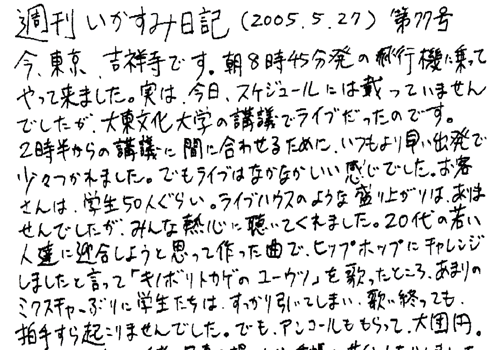 週刊 いかすみ日記 (2005.5.27) 第77号
今、東京、吉祥寺です。朝8時45分発の飛行機に乗って
やって来ました。実は、今日、スケジュールには載っていません
でしたが、大東文化大学の講議でライブだったのです。
2時半からの講議に間に合わせるために、いつもより早い出発で
少々つかれました。でもライブはなかなかいい感じでした。お客
さんは、学生50人ぐらい。ライブハウスのような盛り上がりは、ありま
せんでしたが、みんな熱心に聴いてくれました。20代の若い
人達に迎合しようと思って作った曲で、ヒップホップにチャレンジ
しましたと言って「キノボリトカゲのユーウツ」を歌ったところ、あまりの
ミクスチャーぶりに学生たちは、すっかり引いてしまい、歌い終っても、
拍手すら起こりませんでした。でも、アンコールももらって、大団円。